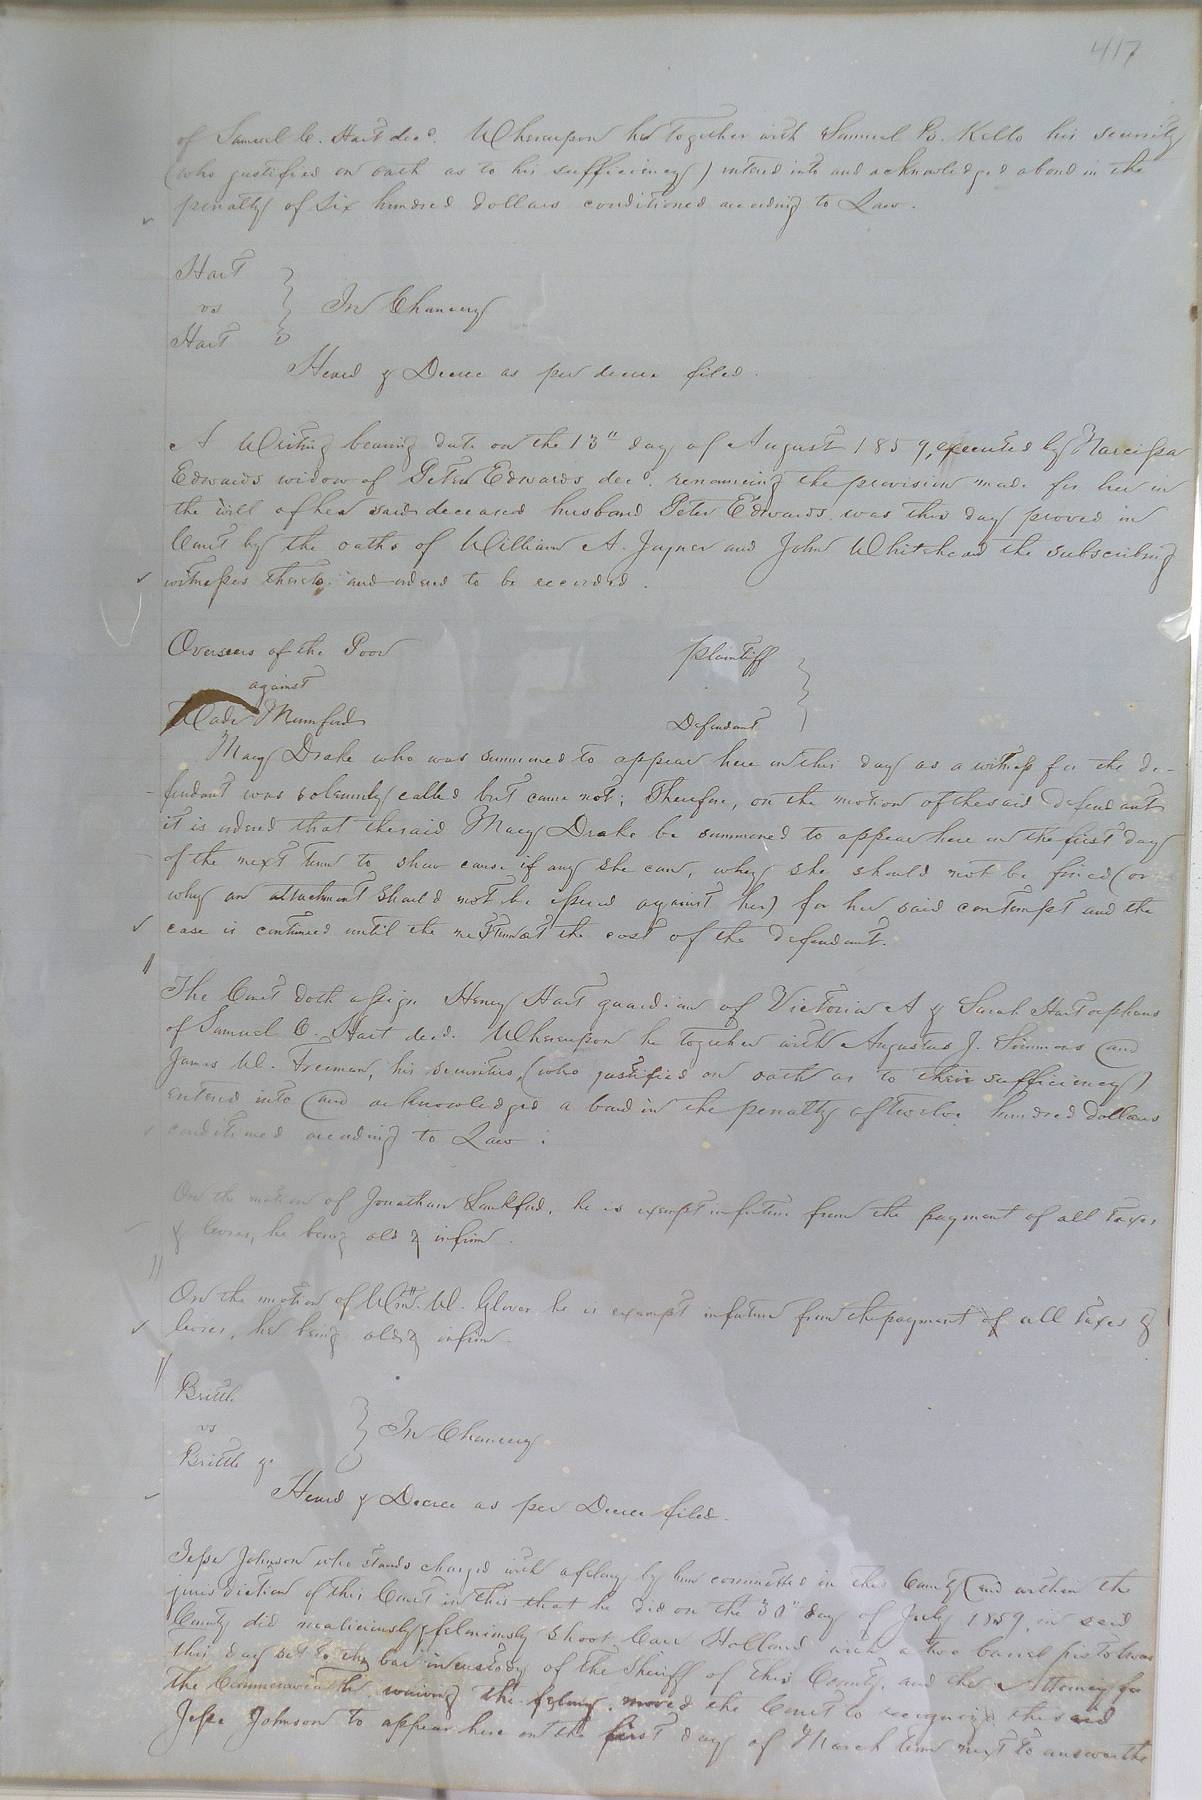 417
of Samuel C. Hart decd. Whereupon he together with Samuel B. Kello his security
(who justified on oath as to his sufficiency) entered into and acknowledged a bond in the
penalty of six hundred dollars conditioned according to Law.
Hart
vs
Hart
In Chancery
Heard & Decree as per decree filed.
A Writing bearing date on the 13" day of August 1859, executed by Narcissa
Edwards widow of Peter Edwards decd. renouncing the provision made for her in
the will of her said deceased husband Peter Edwards was this day proved in
Court by the oaths of William A. Joyner and John Whitehead the subscribing
witnesses thereto, and ordered to be recorded.
Overseers of the Poor Plaintiff
against
Wade Mumford Defendant
Mary Drake who was summoned to appear here on this day as a witness for the de-
-fendant was solemnly called but came not; Therefore, on the motion of the said defendant
it is ordered that the said Mary Drake be summoned to appear here on the first day
of the next term to show cause if any she can, why she should not be fined (or
why an attachment should not be issued against her) for her said contempt and the
case is continued until the next term at the cost of the defendant.
The Court doth assign Henry Hart guardian of Victoria A & Sarah Hart orphans
of Samuel C. Hart decd. Whereupon he together with Augustus J. Simmons and
James W. Freeman, his securities, (who justified on oath as to their sufficiency)
entered into and acknowledged a bond in the penalty of twelve hundred dollars
conditioned according to Law.
On the motion of Jonathan Lankford, he is exempt in future from the payment of all taxes
& levies, he being old & infirm.
On the motion of Wm. W. Glover he is exempt in future from the payment of all taxes &
levies, he being old & infirm.
Brittle
vs
Brittle &c
In Chancery
Heard & Decree as per Decree filed.
Jesse Johnson who stands charged with a felony by him committed in this County and within the
jurisdiction of this Court in this that he did on the 30" day of July 1859, in said
County did maliciously & feloniously shoot Carr Holland with a two barrel pistol was
this day set to the bar in custody of the Sheriff of this County, and the Attorney for
the Commonwealth, waiving the felony, moved the Court to recognize the said
Jesse Johnson to appear here on the first day of March term next to answer the